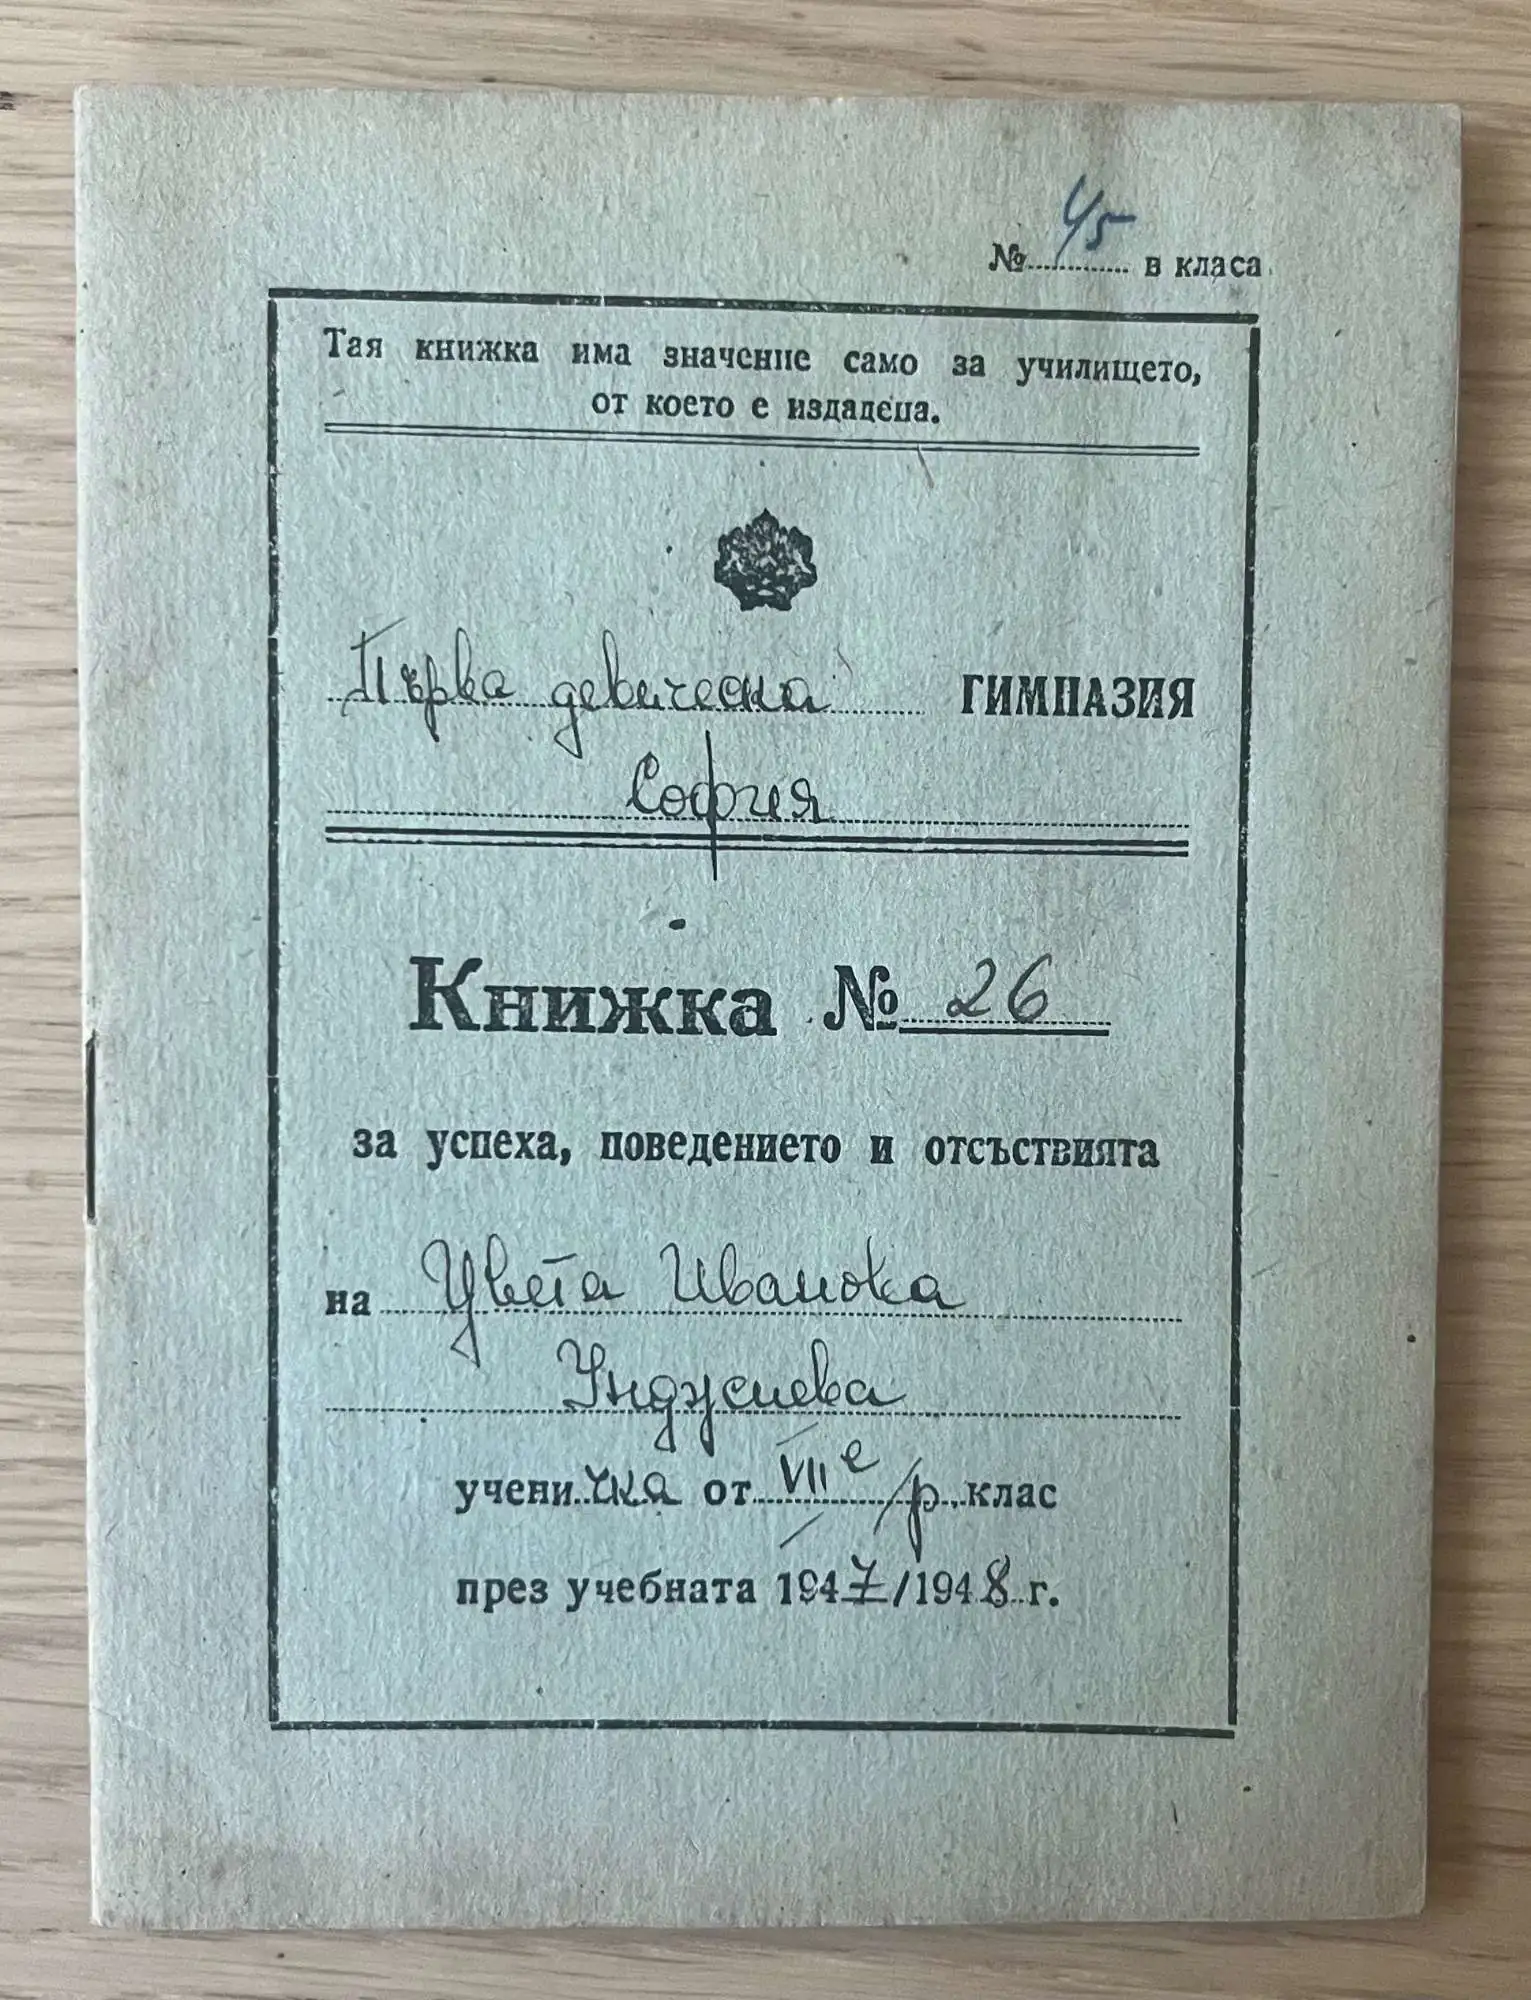 № 45 в класа
Тая книжка има значение само за училището,
от което е издадена.
Първа девическа ГИМНАЗИЯ
София
Книжка № 26
за успеха, поведението и отсъствията
на Цвета Иванова
Инджиева
ученичка от VII е/р клас
през учебната 1947/1948 г.